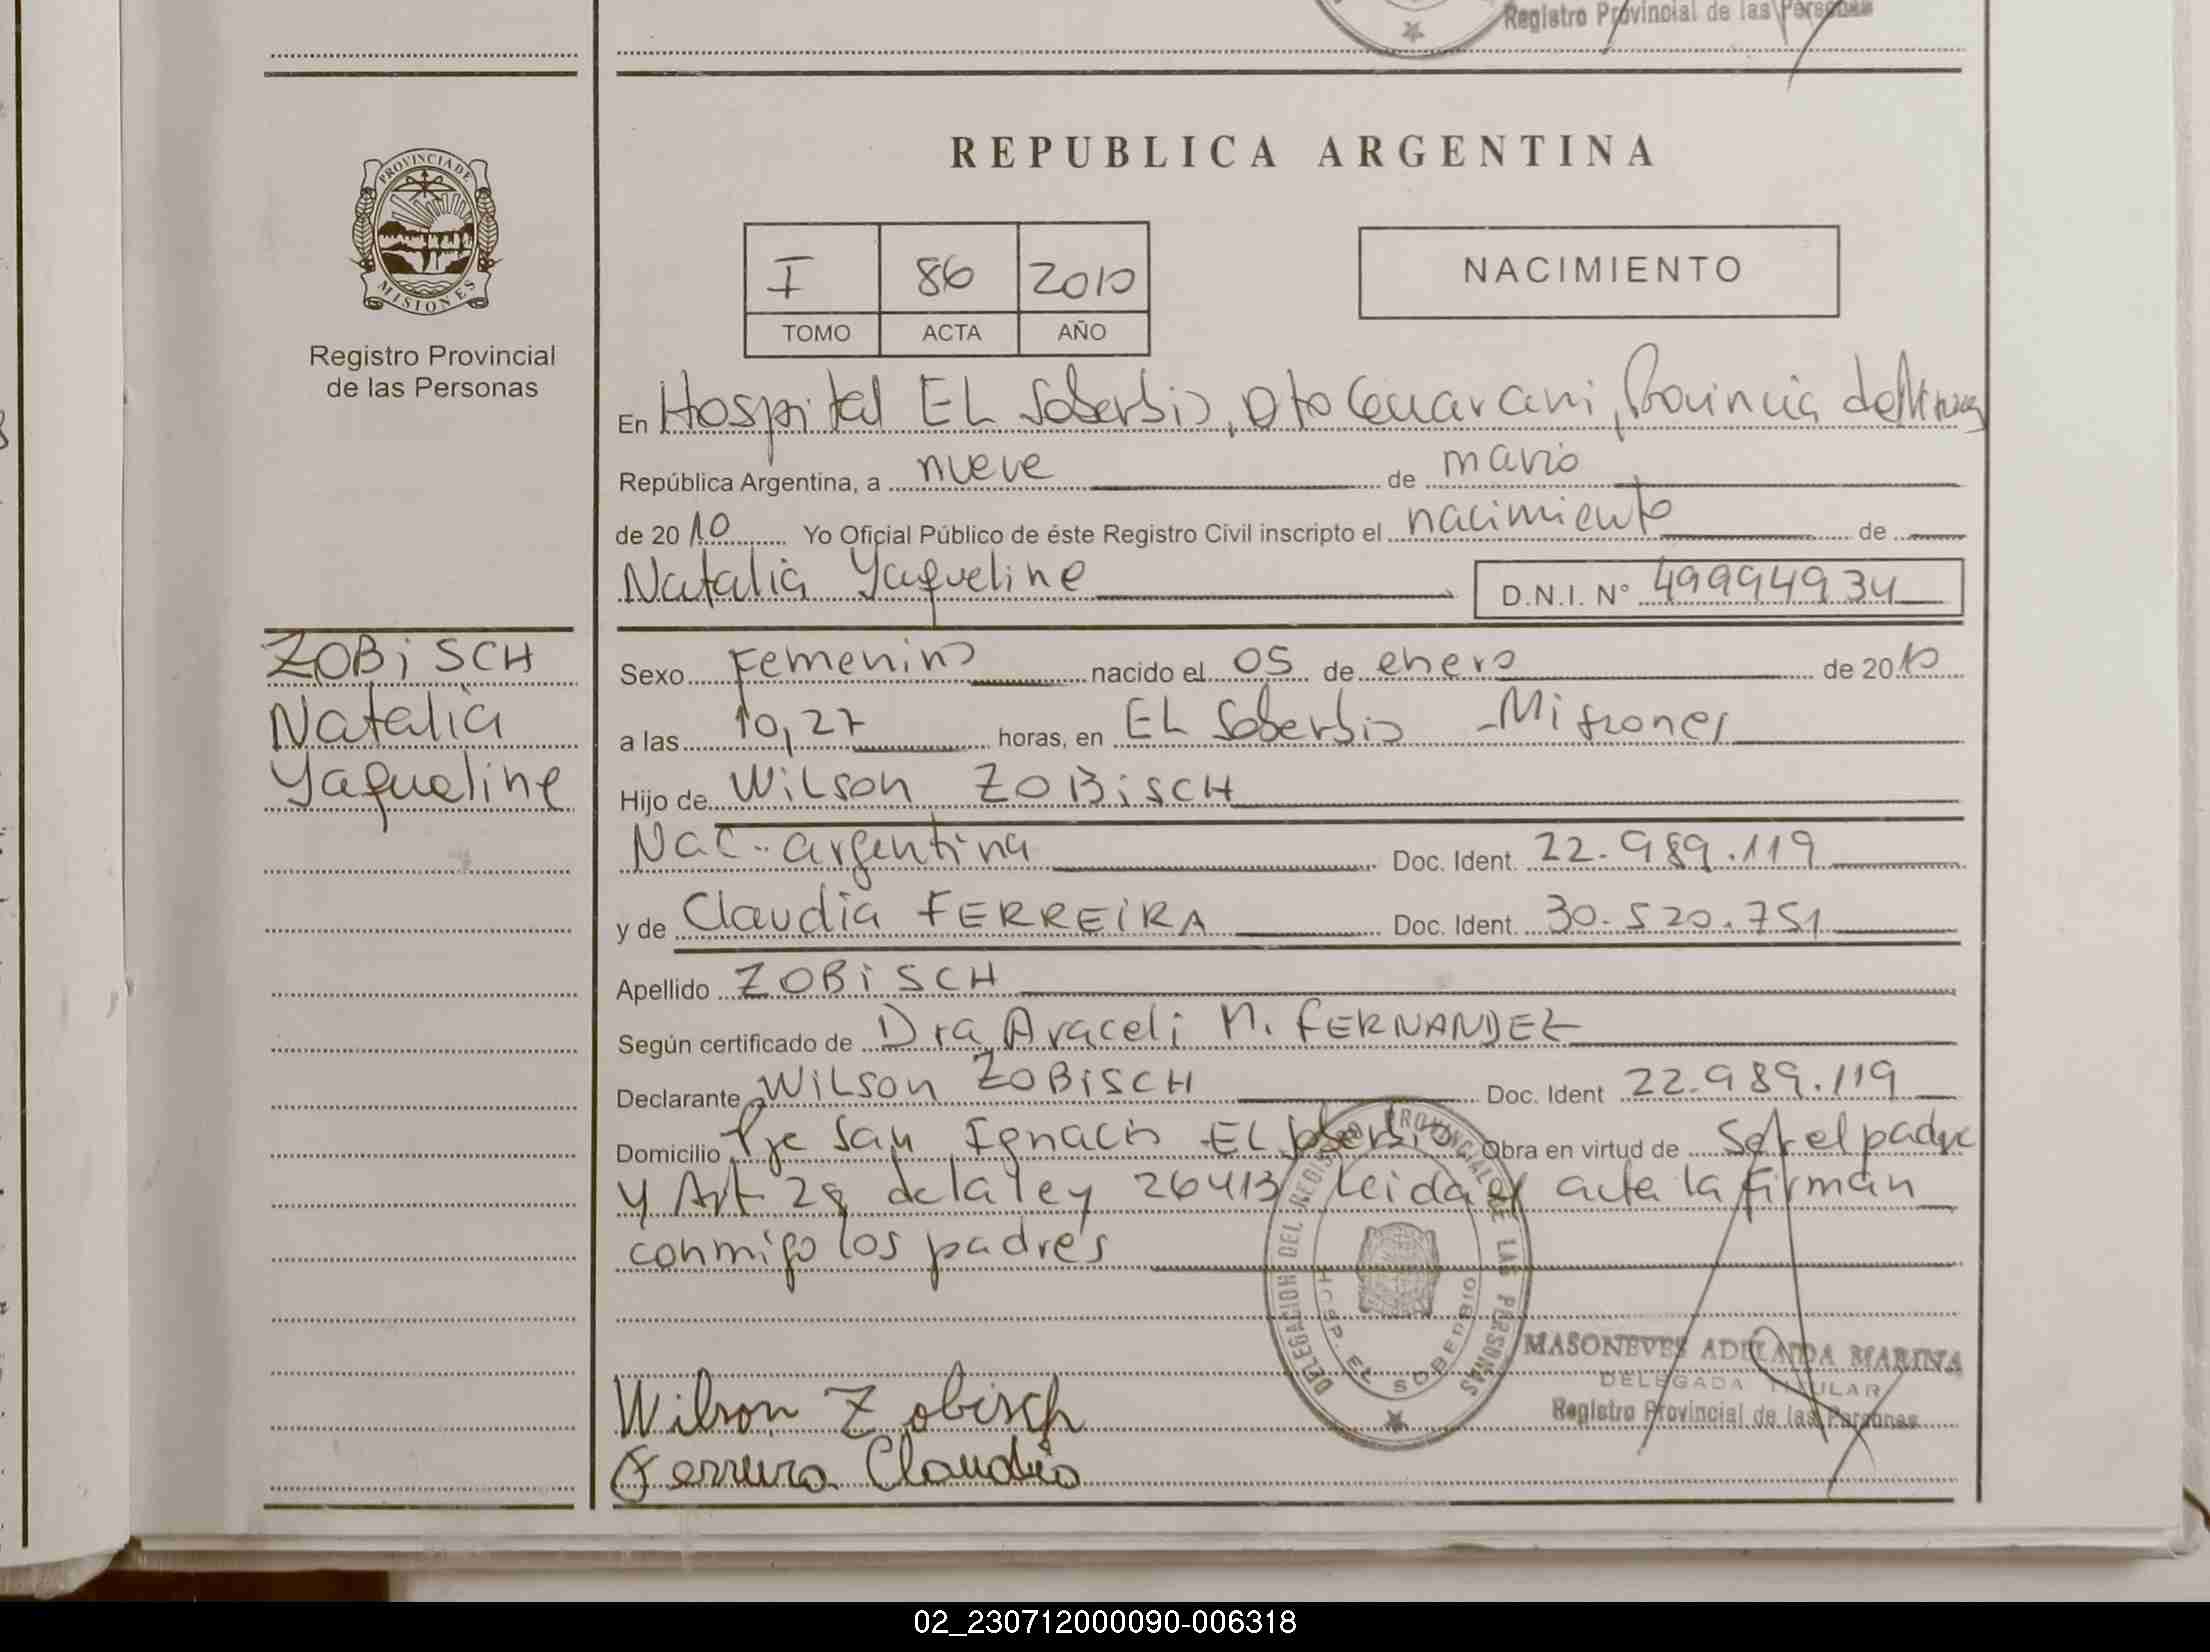 Registro Provincial de las Personas
REPUBLICA ARGENTINA
PROVINCIA DE
MISIONES
Registro Provincial
de las Personas
I 86 2010
TOMO ACTA AÑO
NACIMIENTO
En Hospital EL Soberbio, Dto Guarani, Provincia de Misiones
República Argentina, a nueve de marzo
de 2010 Yo Oficial Público de éste Registro Civil inscripto el nacimiento de
Natalia Yaqueline D.N.I. N° 49994934
ZOBiSCH
Natalia
Yaqueline
Sexo Femenino nacido el 05 de enero de 2010
a las 10,27 horas, en EL Soberbio - Misiones
Hijo de WiLSon ZOBiSCH
Nac. argentina Doc. Ident. 22.989.119
y de Claudia FERREiRA Doc. Ident. 30.520.751
Apellido ZOBiSCH
Según certificado de Dra Araceli M. FERNANDEZ
Declarante WiLSon ZOBiSCH Doc. Ident 22.989.119
Domicilio Pje San Ignacio EL Soberbio Obra en virtud de Ser el padre
y Art 28 de la ley 26413 Leida el acta la firman
conmigo los padres
DELEGACION DEL REGISTRO PROVINCIAL DE LAS PERSONAS
HOSP. EL SOBERBIO
MASONEVES ADELAIDA MARINA
DELEGADA TITULAR
Registro Provincial de las Personas
Wilson Zobisch
Ferreira Claudia
02_230712000090-006318